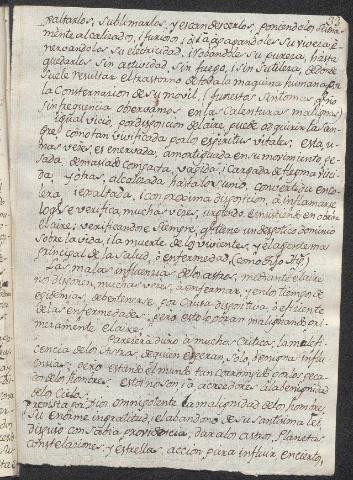 53
exaltarlos, sublimarlos, y escandescerlos, poniendolos suma
mente alcalizado, (furioso) ó ia apagandoles su viveza, é
nervandoles su eletricidad, i robandole su pureza, hasta
quedarlos sin actividad, sin fuego, i sin sutileza, de donde
suele resultar el trastorno de toda la maquina humana por
la consternacion de su movil, (funestas sintomas q.e no
sin frequencia observamos en las calenturas malignas)
igual vicio por disposicion del aire, puede adquirir la san
gre, como tan vivificada por los espiritus vitales. esta, u
nas veces, es enervada, amortiguada en su movimiento, pe
sada, demasiado compacta, vapida, i cargada de flegma acida,
y otras, alcalizada hasta lo sumo, convertida en co
lera, i exaltada, i con proxima disposicion, á inflamarse,
lo q.e se verifica muchas veces, urgiendo é insistiendo en obrar
el aire; verificandose siempre, q.e tiene un despotico dominio
sobre la vida, i la muerte de los vivientes, y el agente mas
principal de la salud, ó enfermedad, (como dijo
Las malas influencias de los astros, mediante el aire
no disponen, muchas veces, á enfermar, y en los tiempos de
epidemias, debe tenerse por causa dispositiva, ó eficiente
de las enfermedades; pero estos obran malignando pri
meramente el aire.
Parecera duro á muchos criticos, la malefi
cencia de los Astros, de quien esperan, solo, benignas influ
encias; pero estando el mundo tan corrompido por los peca
dos del hombre, esta no son ia acreedores á la benignidad
del cielo.
prevista por Dios omnipotente la malignidad de los hombres,
su enorme ingratitud, i el abandono de su santisima lei,
dispuso con sabia providencia, dar a los astros, Planetas
constelaciones, y estrellas, accion para influir en ciertos,